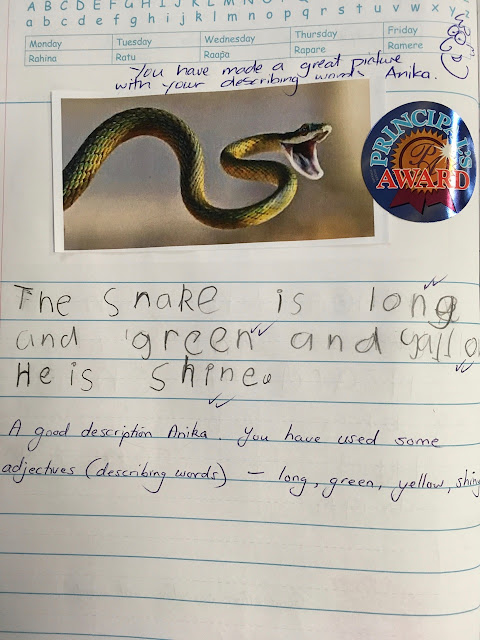 A B C D E F G H I J K L M N O P
a b c d e f g h i j k l m n o p q r s t u v w x y z
Monday Tuesday Wednesday Thursday Friday
Rahina Ratu Raapa Rapare Ramere
You have made a great picture
with your describing words Anika.
PRINCIPAL'S
AWARD
The snake is long
and green and yallo
He is shine.
A good description Anika. You have used some
adjectives (describing words) – long, green, yellow, shiny